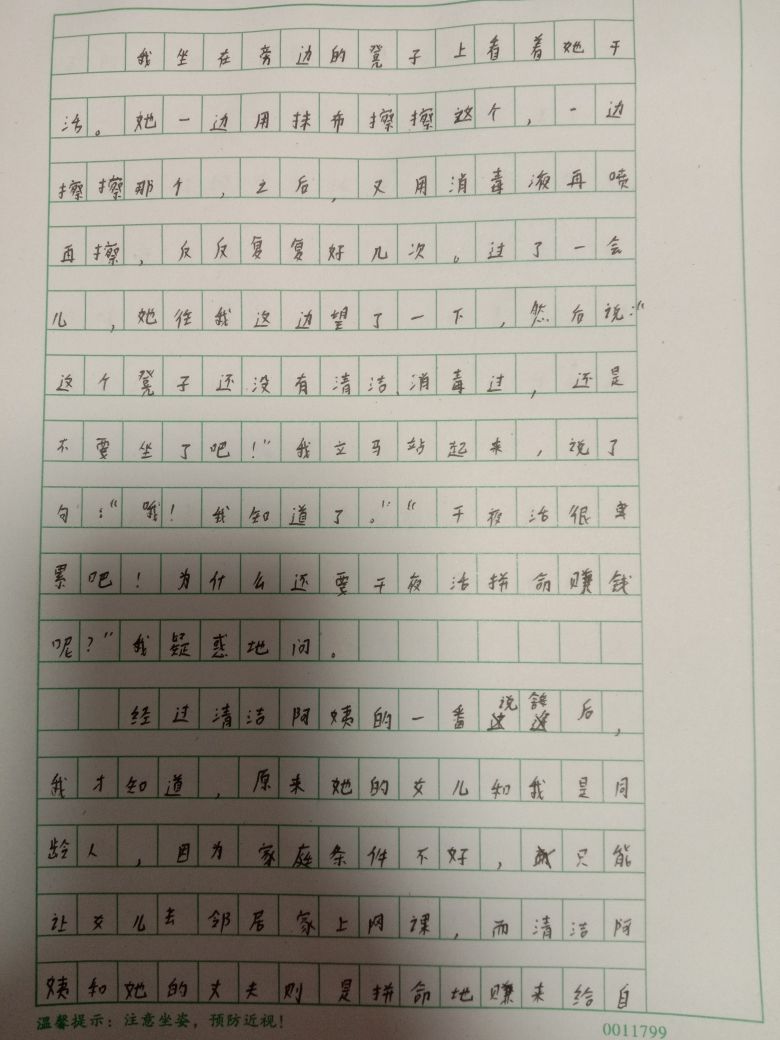 我坐在旁边的凳子上看着她干
活。她一边用抹布擦擦这个，一边
擦擦那个，之后，又用消毒液再喷
再擦，反反复复好几次。过了一会
儿，她往我这边望了一下，然后说：“
这个凳子还没有清洁、消毒过，还是
不要坐了吧！”我立马站起来，说了
句：“哦！我知道了。”“干夜活很
累吧！为什么还要干夜活拼命赚钱
呢？”我疑惑地问。
经过清洁阿姨的一番说辞后，
我才知道，原来她的女儿和我是同
龄人，因为家庭条件不好，只能
让女儿去邻居家上网课，而清洁阿
姨和她的丈夫则是拼命地赚来给自
温馨提示：注意坐姿，预防近视！
0011799